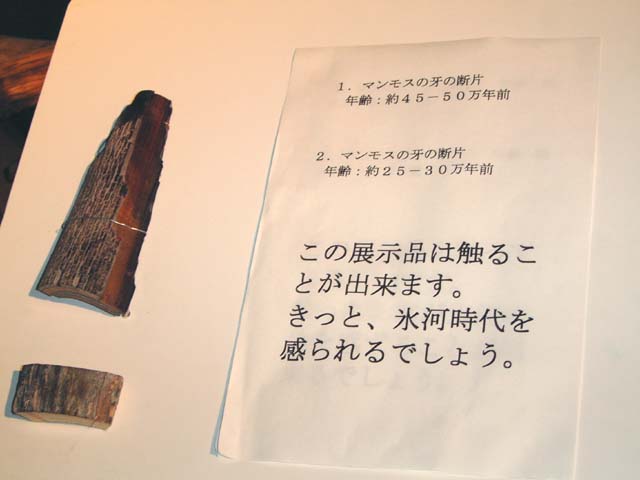 １．マンモスの牙の断片
年齢：約４５－５０万年前
２．マンモスの牙の断片
年齢：約２５－３０万年前
この展示品は触るこ
とが出来ます。
きっと、氷河時代を
感られるでしょう。